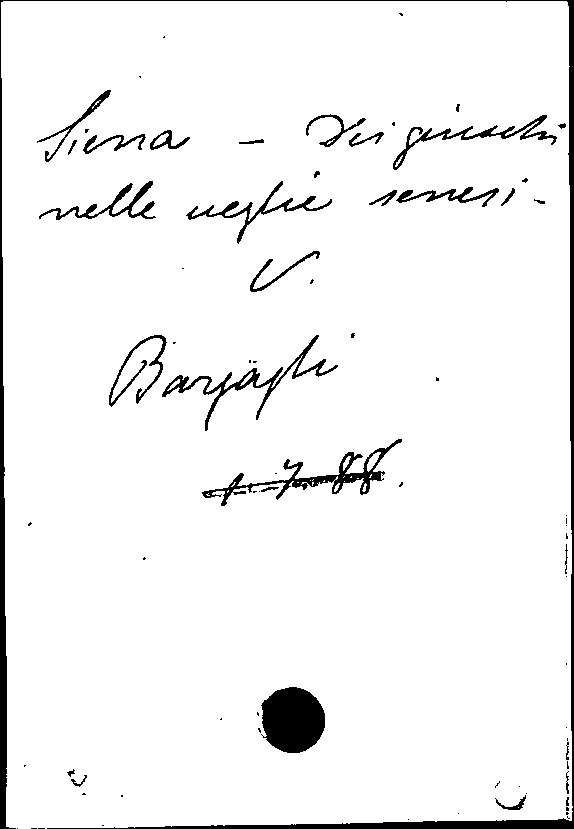 Siena - Dei giuochi
nelle veglie senesi -
V.
Bargagli
1.7.88.